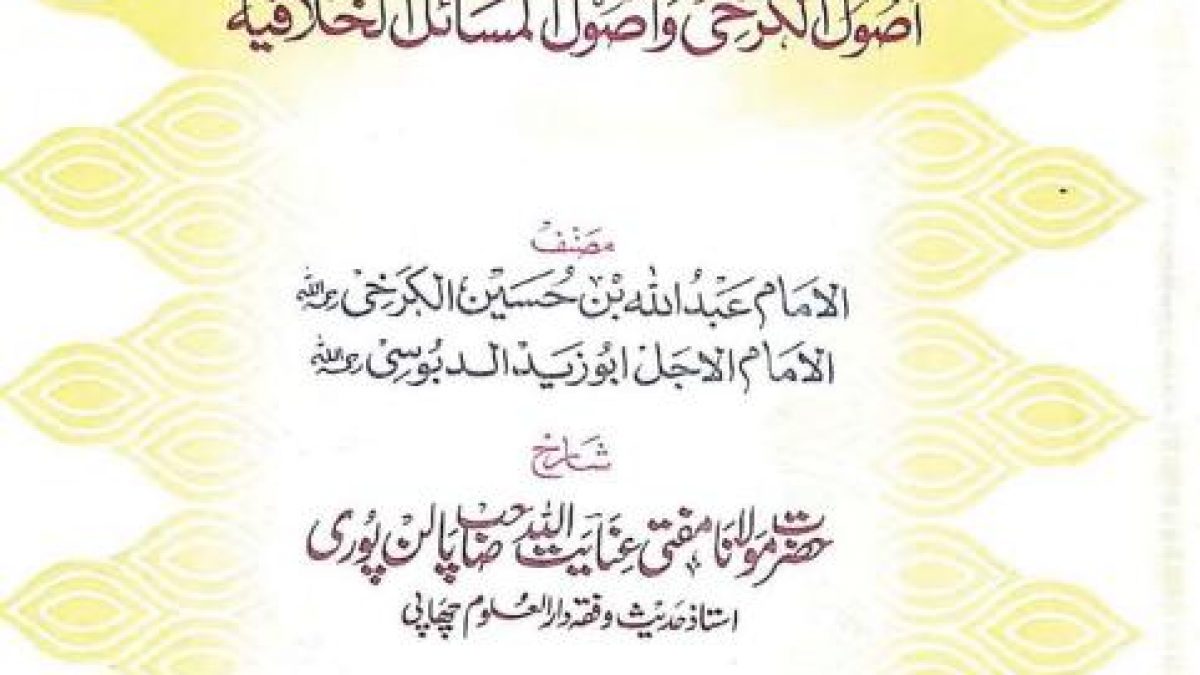 اصول الکرخی واصول المسائل الخلافیة
مصنف
الامام عبد الله بن حسین الکرخی رحمہ اللہ
الامام الاجل ابو زید الدبوسی رحمہ اللہ
شارح
حضرت مولانا مفتی عنایت اللہ صاحب پالن پوری
استاذ حدیث وفقہ دار العلوم چھاپی